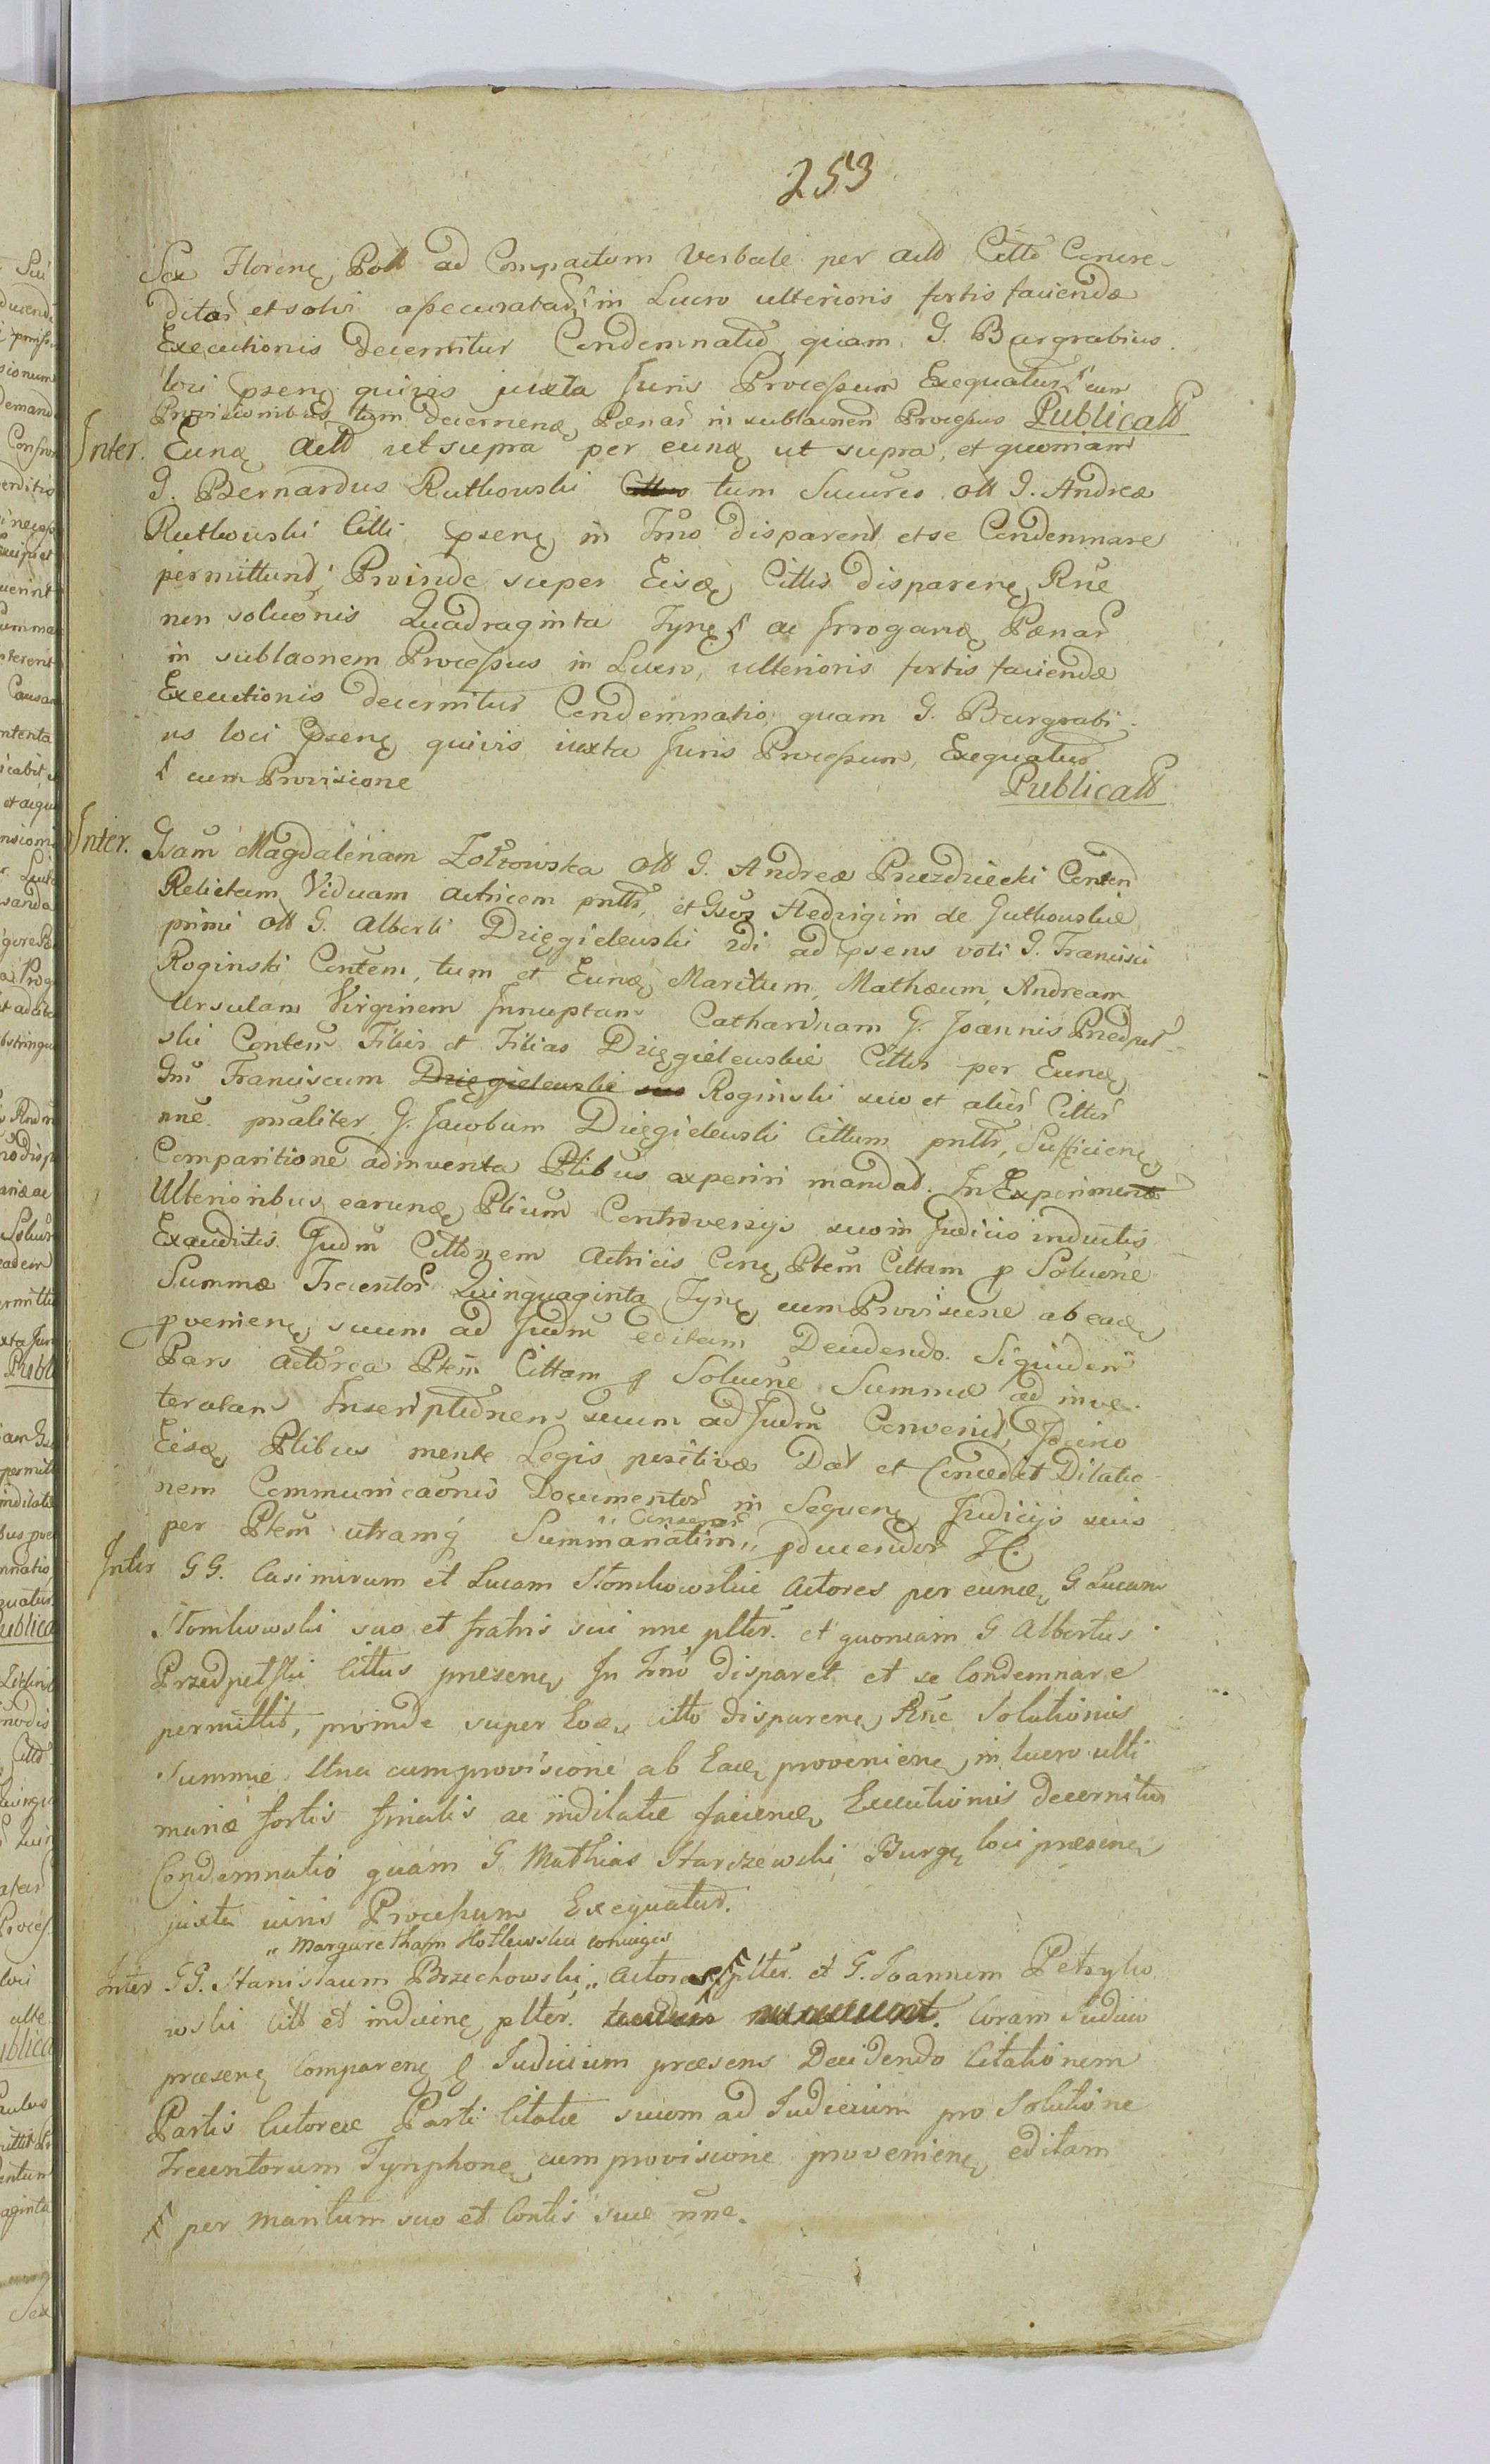 253
Sex Florenę Poll ad Compactum Verbale per actt Citto Concre-
ditas et solvi assecuratas in Lucro ulterioris fortis faciendæ
Executionis decernitur Condemnatio quam G. Burgrabius
loci psenę quivis juxta Juris Processum Exequatur cum
Provisionibus tum decernenę Pœnas in sublaonem Processus Publicatt
Inter. Eunę actt ut supra per eunę ut supra, et quoniam
G. Bernardus Rutkowski Cittus tum Sucures olt G. Andreæ
Rutkowski Citti psenę in Tmo disparent et se Condemnare
permittunt, Proinde super Eisę Cittis disparenę Rne
non soluonis Quadraginta Tynę ac Irroganę Pœnas
in sublaonem Processus in Lucro, ulterioris fortis faciendæ
Executionis decernitur Condemnatio quam G. Burgrabi-
us loci psenę quivis iuxta Juris Processum Exequatur
cum Provisione Publicatt
Inter. Gsam Magdalenam Zołtowska olt G. Andreæ Przezdziecki Conten
Relictam Viduam actricem pntts, et Gsos Hedvigim de Gutkowskie
primi olt G. Alberti Dzięgielewski 2di ad psens voti G. Francisci
Roginski Contem, tum et Eunę Maritum, Mathæum, Andream
Ursulam Virginem Innuptam Catharinam G. Joannis Przedpeł-
ski Contem Filios et Filias Dzięgielewskie Cittos per Eunę
Gm Franciscum Dzięgielewski suo Roginski suo et alios Cittos
nne pnaliter G. Jacobum Dzięgielewski Cittum pntts, Sufficienę
Comparitione adinventa Ptibus experiri mandat. In Experimento
Ulterioribus earunę Ptium Controversijs suo in Judicio inductis
Exauditis Judm Cittonem Actricis Conę Ptem Cittam p Soluone
Summæ Trecentor Quinquaginta Tynę cum Provisione ab eadę
pvenienę suum ad Judm editam Decidendo. Siquidem
Pars actorea Ptem Cittam p Soluone Summæ ad inve-
teratam Inscriptionem suum ad Judm Convenit, Idcirco
Eisę Ptibus mente Legis positivæ Dat et Concedit Dilatio-
nem Communicaonis Documentor in Sequenę Judicijs suis
per Ptem utramq Summariatim,, pducendor H.
Inter GG. Casimirum et Lucam Stomkowskie actores per eunę G Lucam
Stomkowski suo et fratris sui nne plter. et quoniam G Albertus
Przedpełski Cittus præsenę In Tmo disparet et se Condemnare
permittit, proinde super Eoę citto disparenę Rne Solutionis
Summæ Una cum provisione ab Eadę provenienę in lucro ulti
mariæ fortis finalis ac indilatæ faciendę Executionis decernitur
Condemnatio quam G Mathias Starszewski Burgę loci præsenę
juxta iuris Processum Exequatur.
,, Margaretham Kotkowska coniuges
Inter GG. Stanislaum Brzechowski,, actores plter. et G. Joannem Petryko
wski Citt et inducinę plter. Coram Judicio
præsenę Comparenę Judicium præsens Decidendo Citationem
Partis Actoreæ Parti Citatæ suum ad Judicium pro Solutione
Trecentorum Tynphonę cum provisione provenienę editam
per maritum suo et Contis suæ nne.